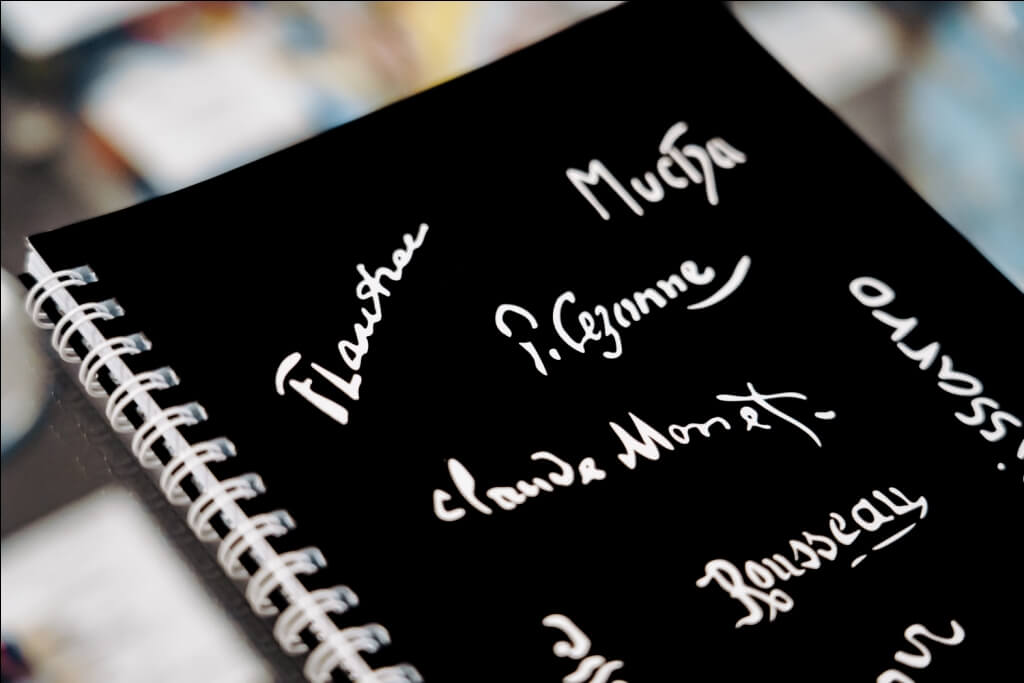 Mucha
HLautrec
P. Cezanne
issarro
Claude Monet.
Rousseau